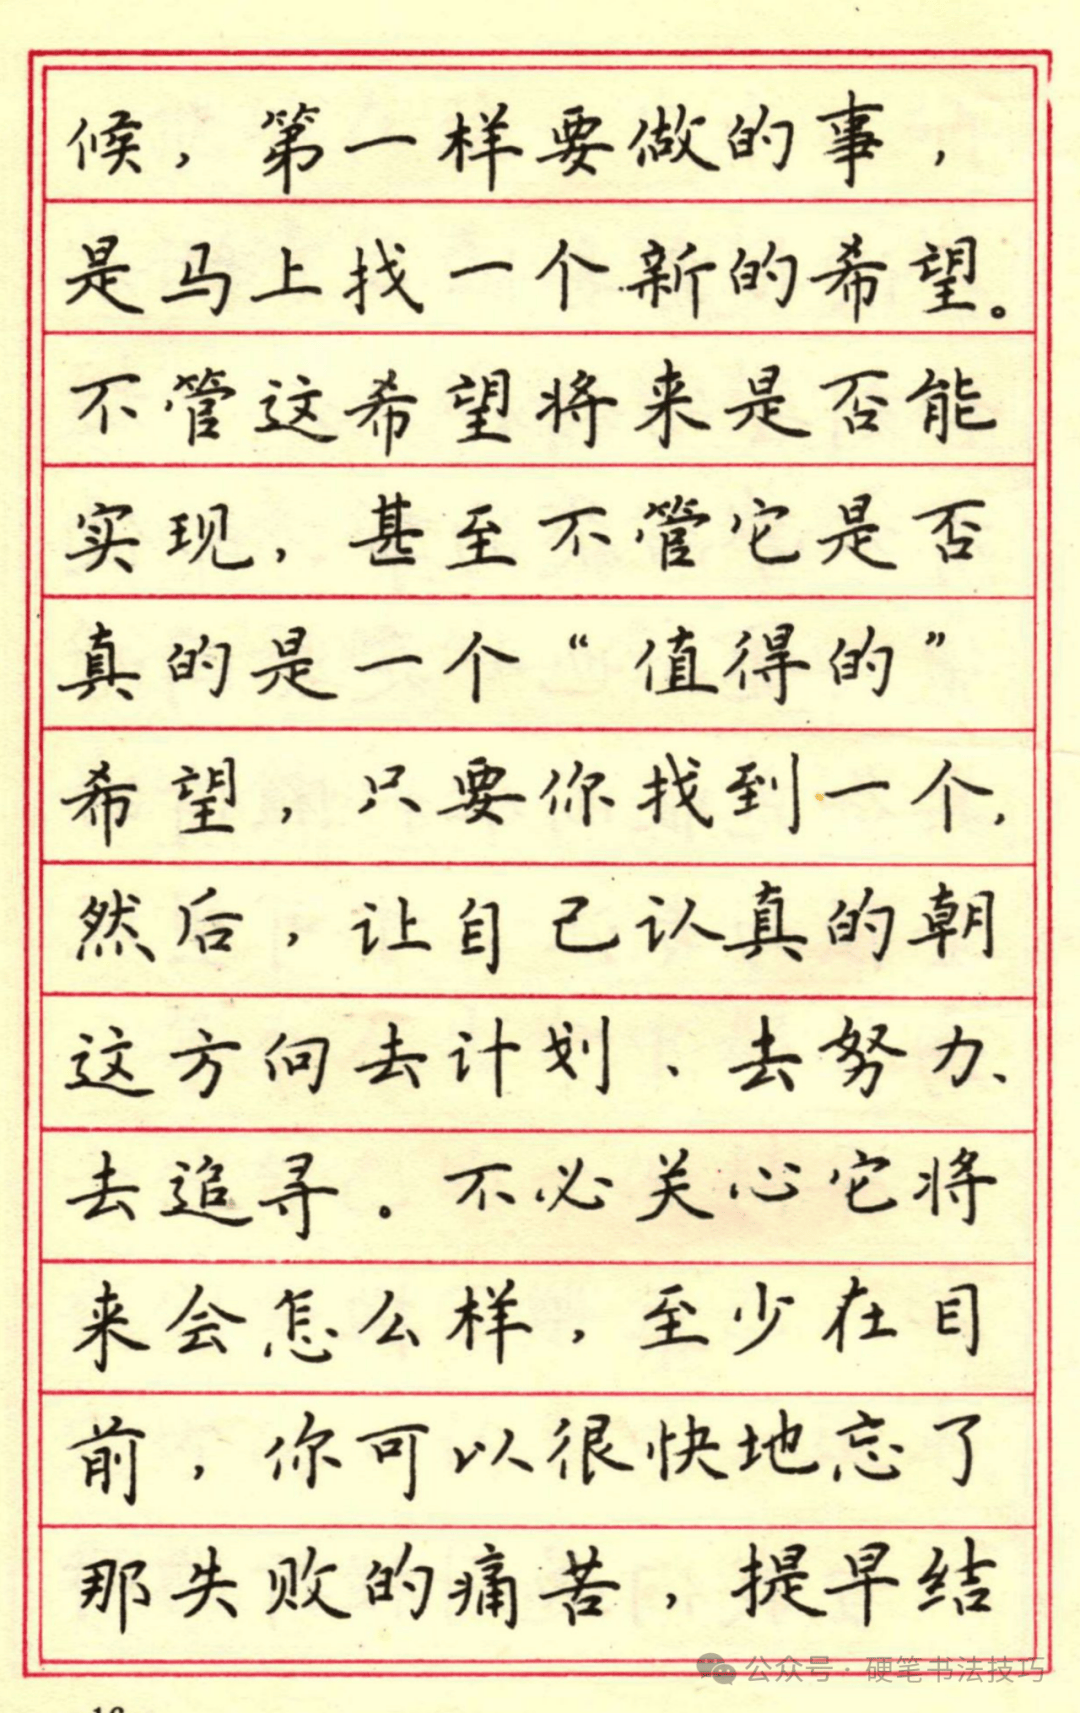 候，第一样要做的事，
是马上找一个新的希望。
不管这希望将来是否能
实现，甚至不管它是否
真的是一个“值得的”
希望，只要你找到一个，
然后，让自己认真的朝
这方向去计划、去努力、
去追寻。不必关心它将
来会怎么样，至少在目
前，你可以很快地忘了
那失败的痛苦，提早结
公众号·硬笔书法技巧